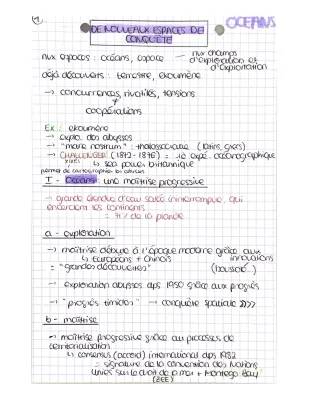 OCÉANS
DE NOUVEAUX ESPACES DE
CONQUÊTE
nvx espaces : océans, espace — nvx champs
d'exploration et
d'exploitation
déjà découverts : terrestre, écoumène
→ concurrences, rivalités, tensions
+
coopérations
Ex : écoumène
→ explo. des abysses
→ "mare nostrum" : thalassocratie (latins, grecs)
→ CHALLENGER (1872-1876) = 1e expé. océanographique
↳ sea power britannique
permet de cartographier les abysses
I - Océans : une maîtrise progressive
→ grande étendue d'eau salée ininterrompue, qui
encerclent les continents
= 71% de la planète
a - exploration
→ maîtrise débute à l'époque moderne grâce aux
↳ Européens + Chinois innovations
= "grandes découvertes" (boussole...)
→ exploration abysses dps 1950 grâce aux progrès
→ "progrès timides" → conquête spatiale >>>
b - maîtrise
→ maîtrise progressive grâce au processus de
territorialisation
↳ consensus (accord) international dps 1982
= signature de la convention des Nations
Unies sur le droit de la mer à Montego Bay
(ZEE)